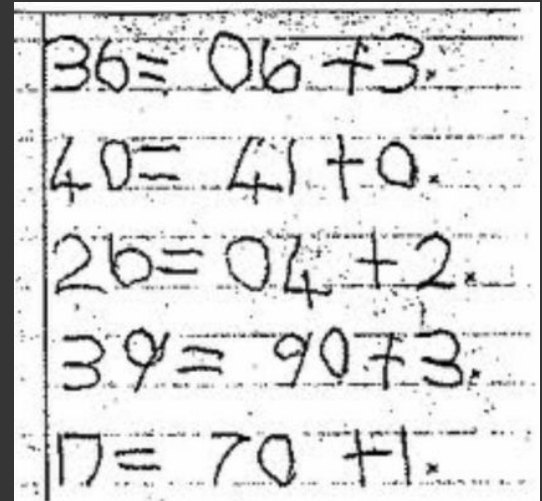 36= 06 +3.
40= 41 +0.
26= 04 +2.
39= 90+3.
17= 70 +1.